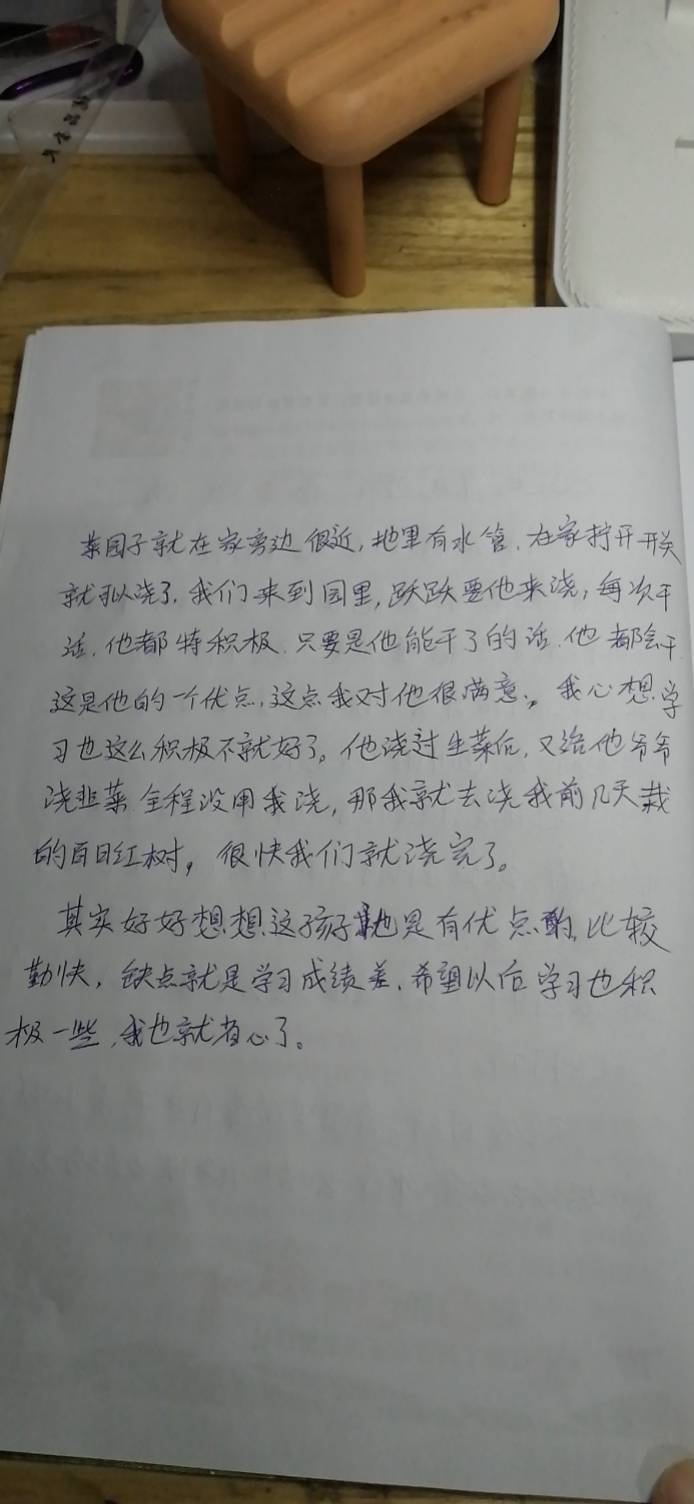 菜园子就在家旁边很近,地里有水管.在家拧开开关
就可以浇了.我们来到园里,跃跃要他来浇,每次干
活.他都特积极.只要是他能干了的话.他都会干
这是他的一个优点,这点我对他很满意,我心想学
习也这么积极不就好了。他浇过生菜后,又给他爷爷
浇韭菜全程没用我浇,那我就去浇我前几天栽
的百日红树,很快我们就浇完了。
其实好好想想这孩子也是有优点的,比较
勤快,缺点就是学习成绩差.希望以后学习也积
极一些,我也就省心了。